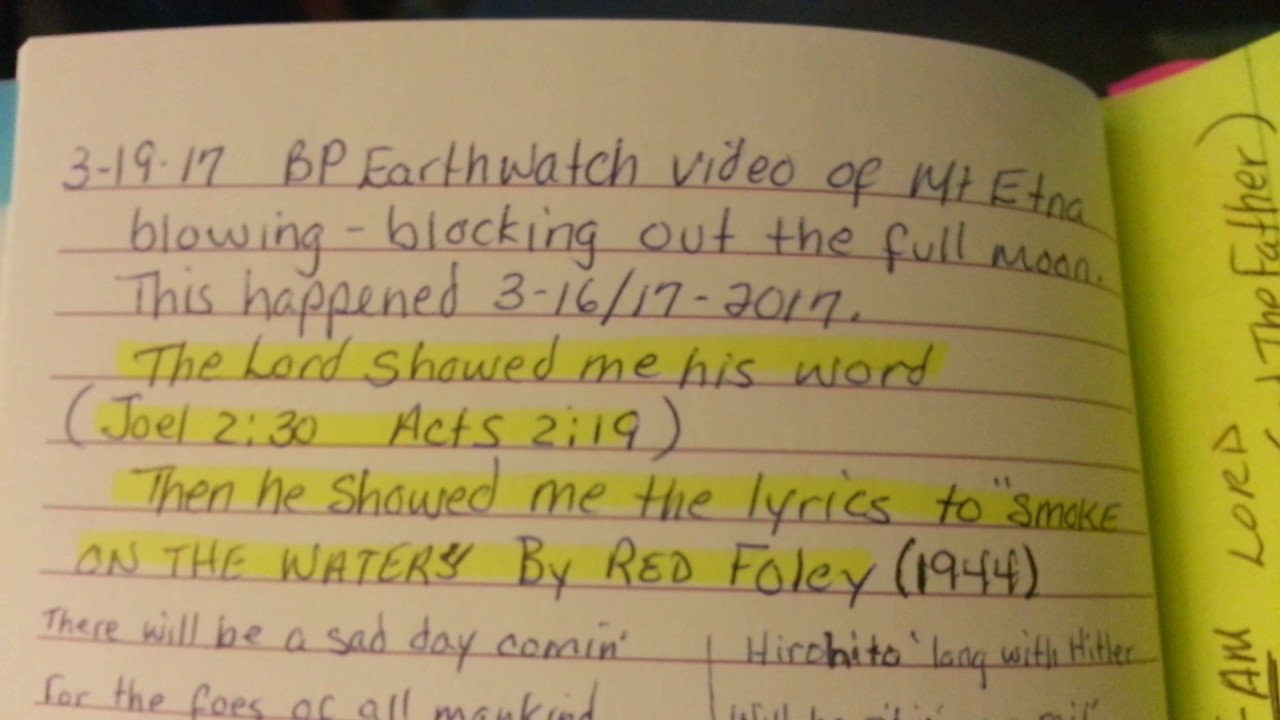 3-19-17 BP EarthWatch video of Mt Etna
blowing - blocking out the full moon.
This happened 3-16/17-2017.
The Lord showed me his word
(Joel 2:30 Acts 2:19)
Then he showed me the lyrics to "SMOKE
ON THE WATER" By RED Foley (1944)
There will be a sad day comin'
For the foes of all mankind
Hirohito 'long with Hitler
Will be
AM LORD
(The Father)